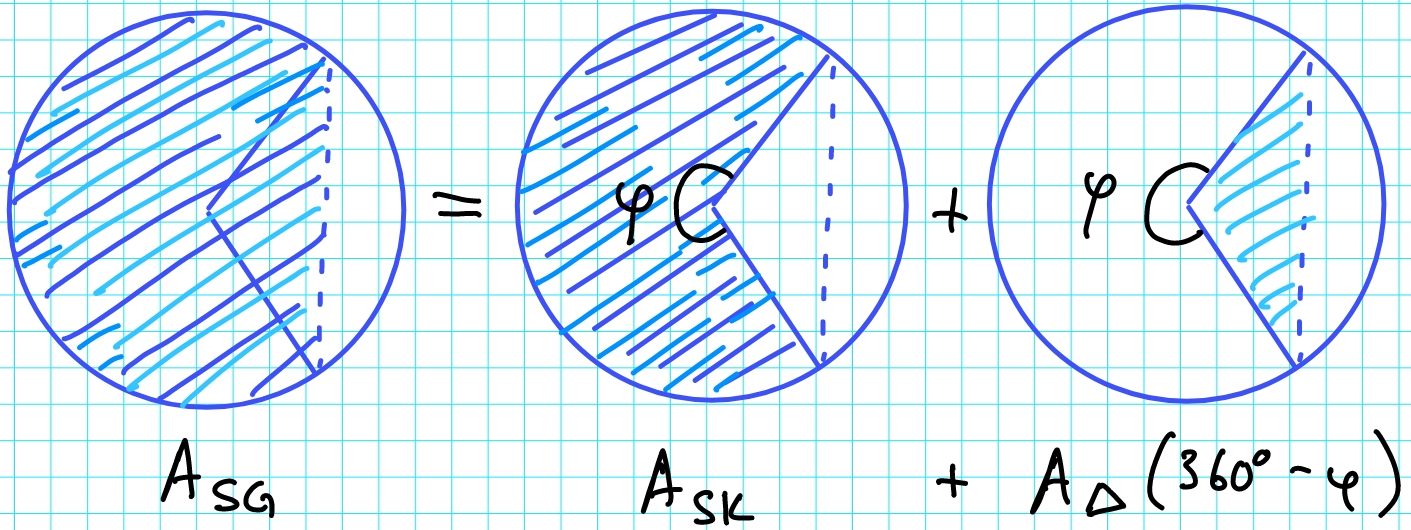 = φ + φ
A_SG A_SK + A_Δ (360° - φ)